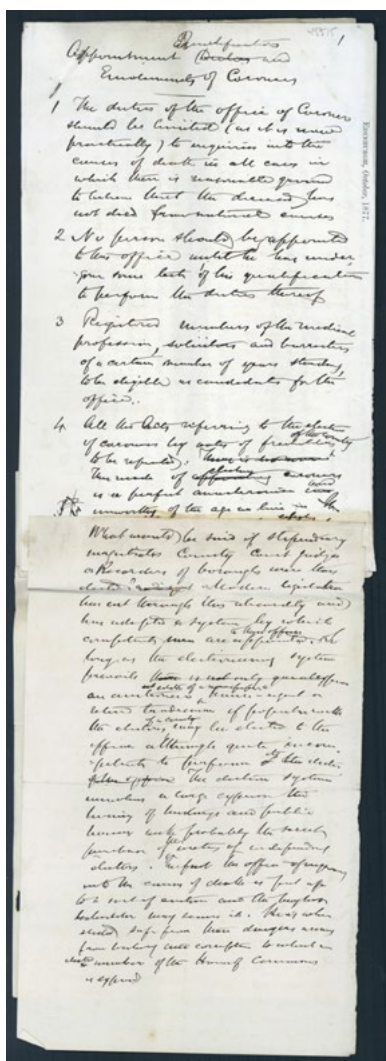 Qualification
Appointment Duties and
Emoluments of Coroners
1
Edinburgh, October, 1877.
1 The duties of the office of Coroner
should be limited (as it is now
practically) to inquiries into the
causes of death in all cases in
which there is reasonable ground
to believe that the deceased has
not died from natural causes
2 No person should be appointed
to this office until he has under
gone some tests of his qualification
to perform the duties thereof
3 Registered members of the medical
profession, solicitors and barristers
of a certain number of years standing,
to be eligible as candidates for the
office.
4 All the Acts referring to the election
of coroners by votes of freeholders of the County
to be repealed.
The mode of electing coroners
is a perfect anachronism and
unworthy of the age we live in
What would be said of stipendiary
magistrates County Court judges
or Recorders of boroughs were thus
elected? Modern legislation
has cut through this absurdity and
has adopted a system by which
competent men are appointed to these offices. So
long as the electioneering system
prevails
an auctioneer house agent or
retired tradesman if popular with
the electors of a county may be elected to the
office although quite incom-
petent to perform its duties
The election system
involves a large expense the
hiring of and public
houses and probably the
purchase of the votes of
electors. In fact the office of inquiry
into the causes of death is put up
to a sort of auction and the highest
bidder may secure it. He is when
elected safe from those dangers arising
from bribery and corruption to which an
elected member of the House of Commons
is exposed